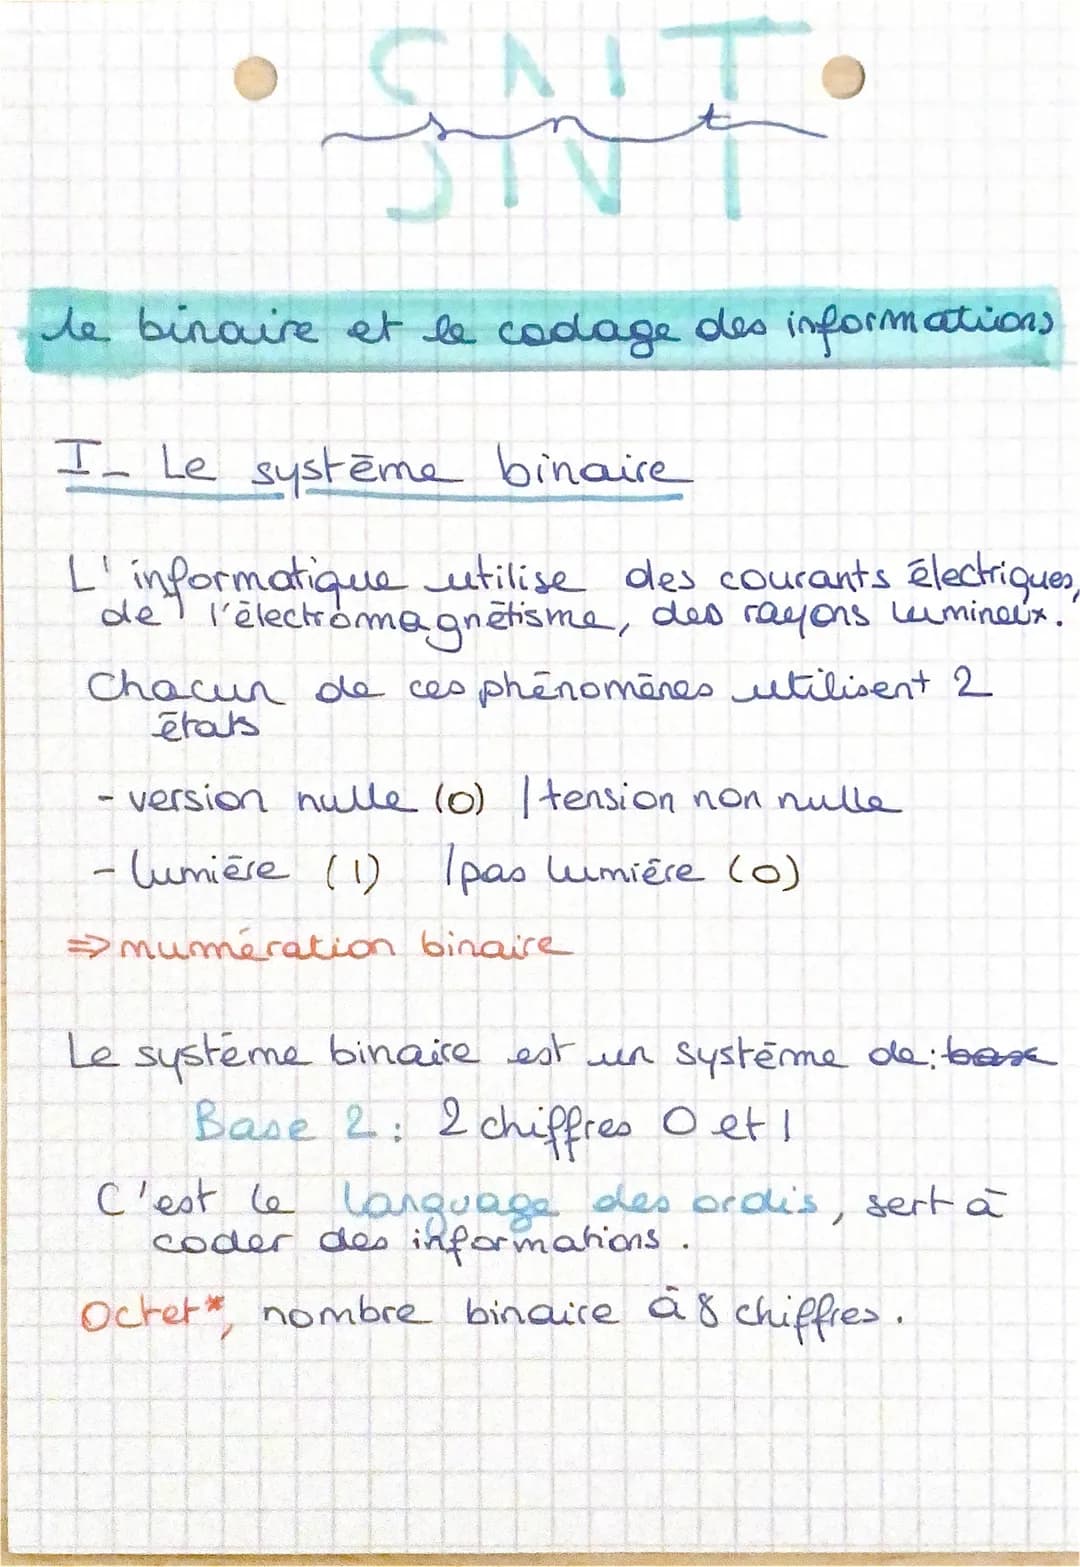 SNT
snt
le binaire et le codage des informations
I- Le système binaire
L'informatique utilise des courants électriques,
de l'électromagnétisme, des rayons lumineux.
Chacun de ces phénomènes utilisent 2
états
- version nulle (0) | tension non nulle
- lumière (1) | pas lumière (0)
⇒ numération binaire
Le système binaire est un système de: base
Base 2: 2 chiffres 0 et 1
C'est le language des ordis, sert à
coder des informations.
Octet*, nombre binaire à 8 chiffres.